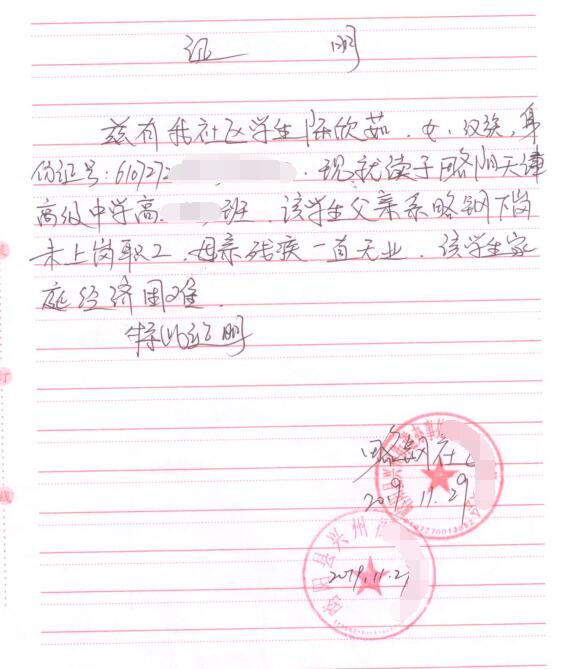 证 明
兹有我社区学生陈欣茹．女．汉族，身
份证号：610727 ．现就读于略阳天津
高级中学高 班．该学生父亲系略钢下岗
未上岗职工．母亲残疾一直无业．该学生家
庭经济困难．
特此证明
略钢社
2019.11.29
略阳县兴州
2019.11.29
订
线